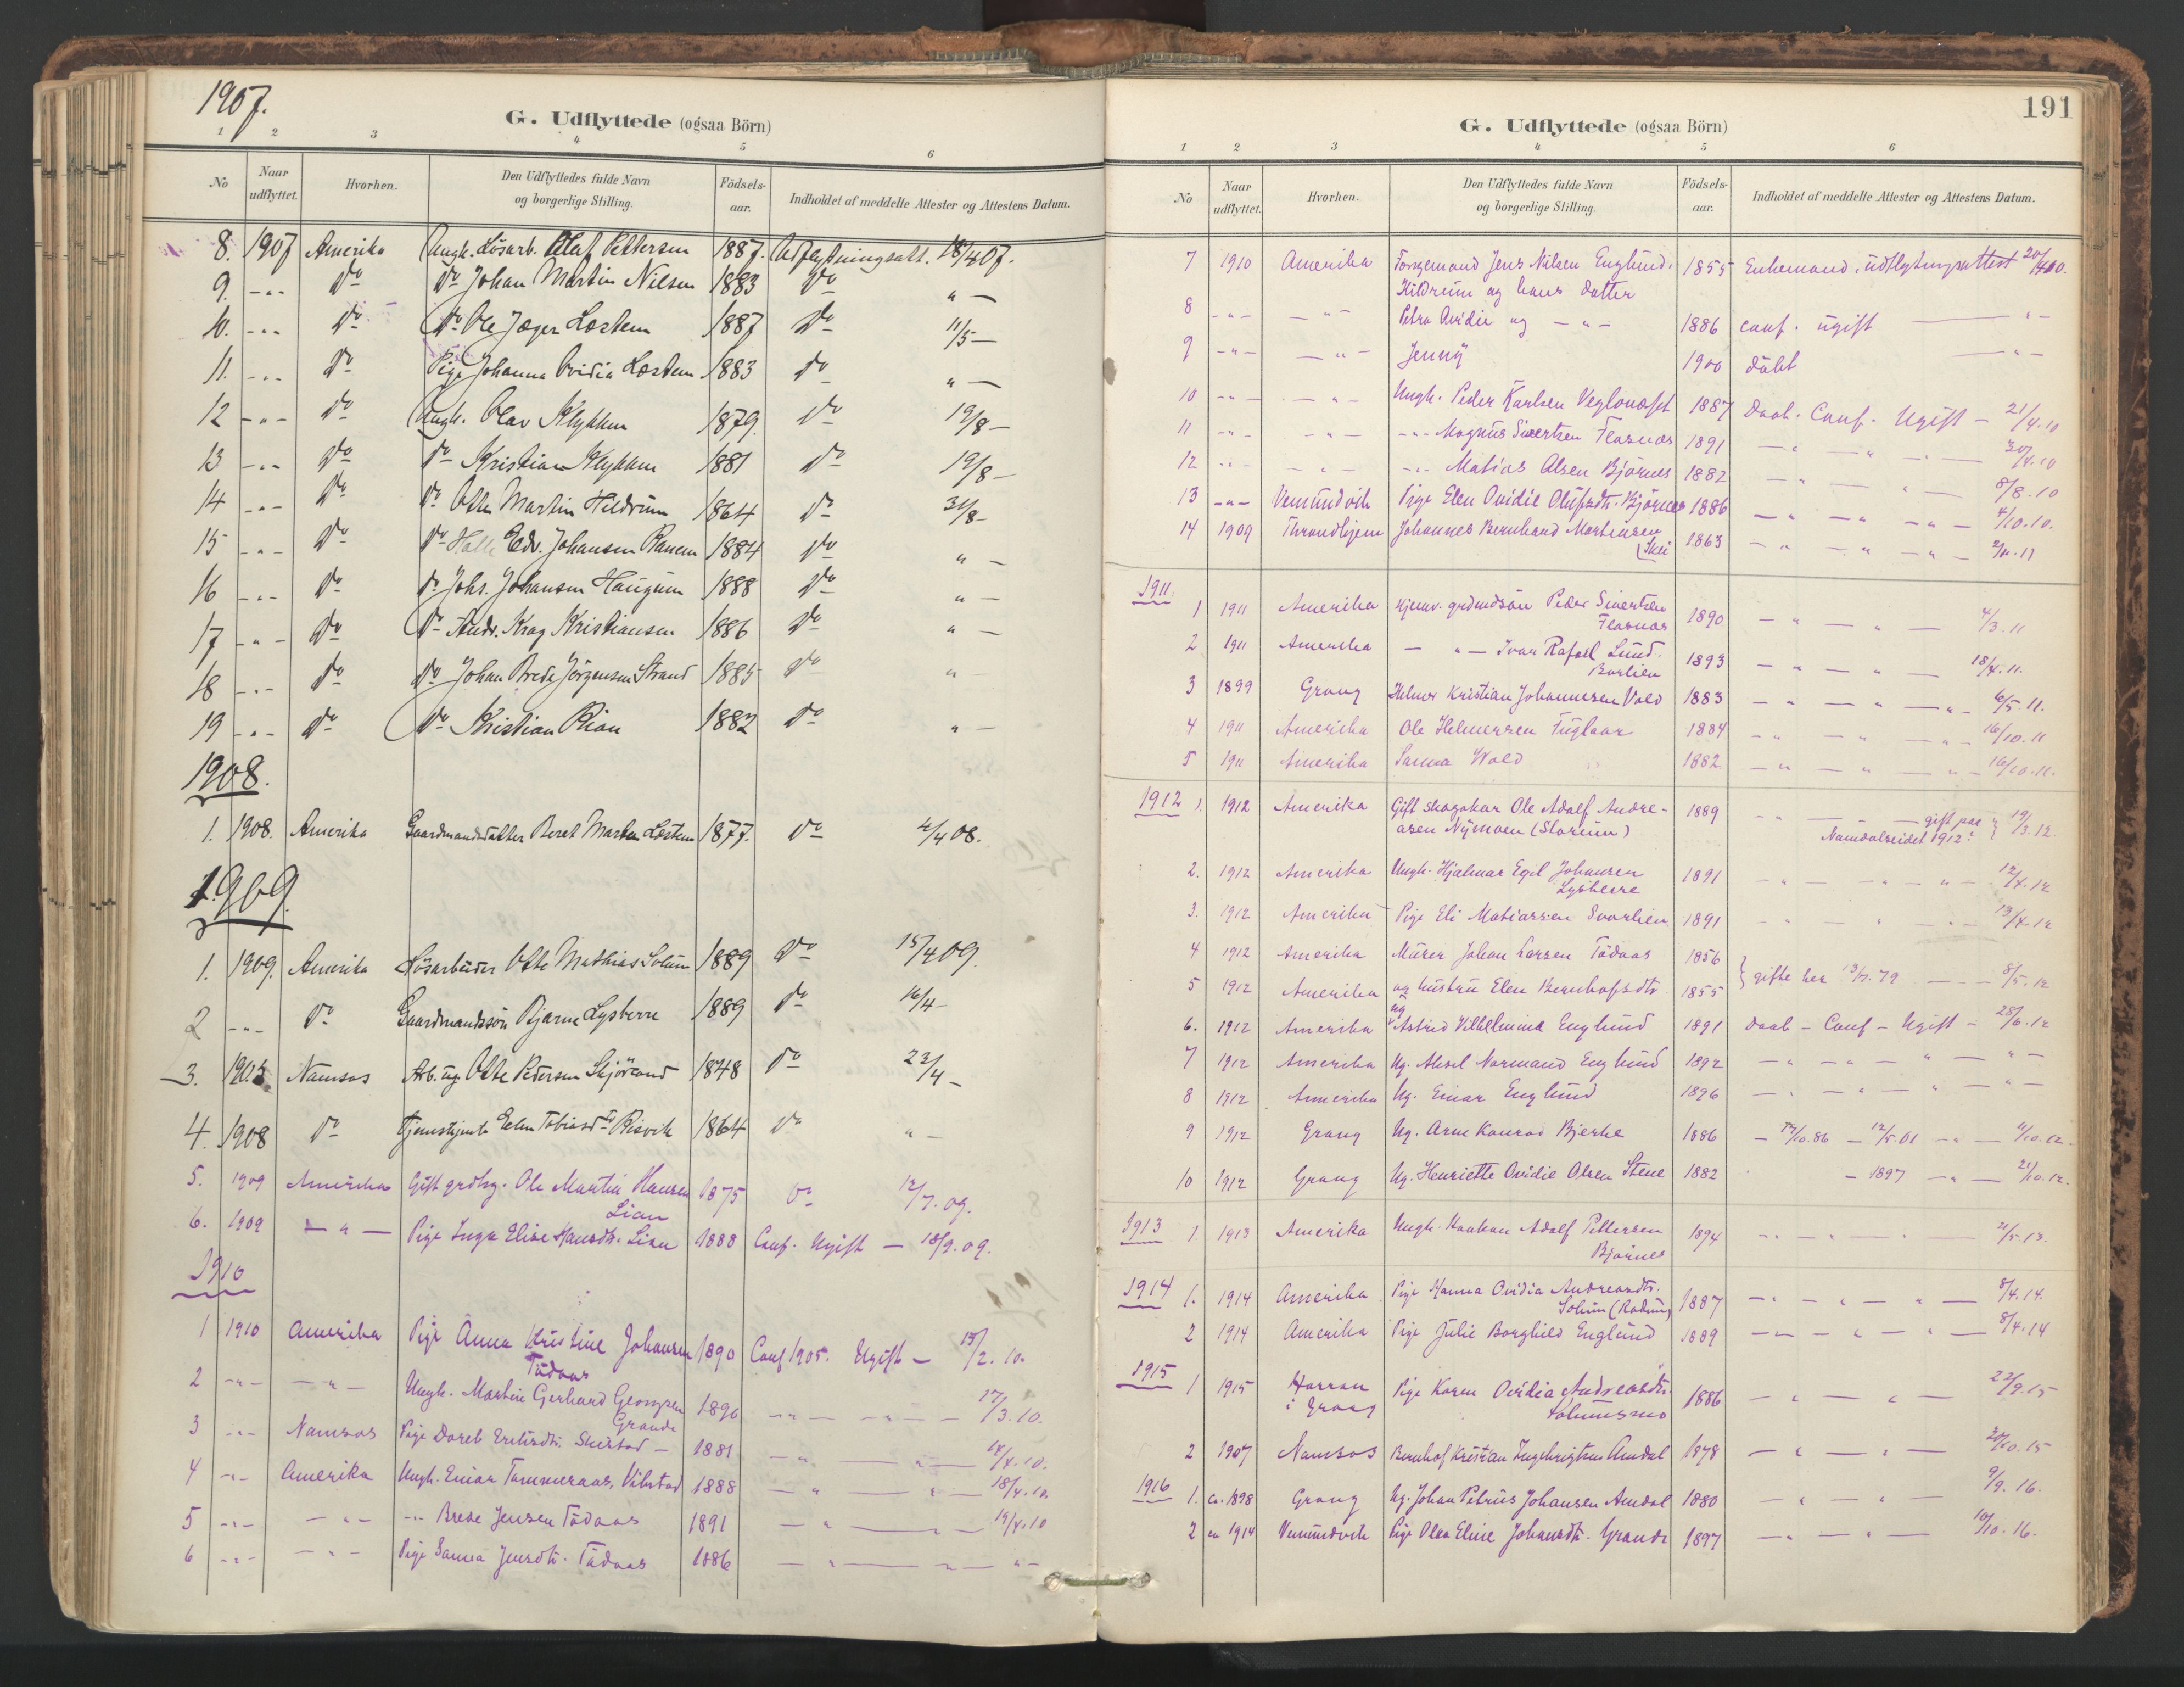 1907.
G. Udflyttede (ogsaa Börn)
1 2 3 4 5 6
No Naar udflyttet. Hvorhen. Den Udflyttedes fulde Navn og borgerlige Stilling. Födsels-aar. Indholdet af meddelte Attester og Attestens Datum.
8. 1907 Amerika Ungk. Lösarb. Olaf Pettersen 1887. Udflytningsatt. 18/4 07.
9. -"- do do Johan Martin Nilsen 1883 do " -
10. -"- do do Ole Jæger Løstem 1887 do 11/5 -
11. -"- do Pige Johanna Ovidia Løstem 1883 do " -
12 -"- do Ungk. Olav Klykken 1879. do 19/8 -
13 -"- do do Kristian Klykken 1881 do 19/8 -
14 -"- do do Otto Martin Hildrum 1864 do 31/8 -
15 -"- do do Edv. Johansen Ranem 1884 do " -
16 -"- do do Johs. Johansen Haugum 1888 do " -
17 -"- do do Andr. Krag Kristiansen 1886 do " -
18 -"- do do Johan Brede Jörgensen Strand 1885 do "
19 -"- do do Kristian Rian 1882 do " -
1908.
1. 1908. Amerika Gaardmandsdatter Beret Løstem 1877. do 4/4 08.
1909.
1. 1909. Amerika Lösarbeider Otto Mathias Solum 1889 do 15/4 09.
2 -"- do Gaardmandssön Bjarne Lysberre 1889 do 16/4 -
3. Namsos Arb. ug. Otte Pedersen 1848 do 23/4 -
4. 1908 do Elen Tobiasdtr Risvik 1864 do " -
5. 1909 Amerika Gift grdbr. Ole Martin Hansen 1875 do 12/7.09.
Lian
6. 1909 - " - Pige Inga Elise Hansdtr. Lian 1888 Conf. Ugift - 18/9.09.
1910
1 1910 Amerika Pige Anna Kristine Johansen 1890 Conf 1905. Ugift - 15/2.10.
Tødaas
2 -"- -"- Ungk. Martin Gerhard Georgsen 1890 -"- -"- 17/3.10.
Grande
3 -"- Namsos Pige Doret 1881 - " - " - 14/4.10.
4 -"- Amerika Ungk. Einar Tømmeraas, Vibstad 1888 - " - " - 18/4.10.
5 -"- -"- -"- Brede Jensen Tødaas 1891 - " - " - 19/4.10
6 -"- -"- Pige Sanna Jensdtr. Tødaas 1886 - " - " - " -
191
G. Udflyttede (ogsaa Börn)
1 2 3 4 5 6
No Naar udflyttet. Hvorhen. Den Udflyttedes fulde Navn og borgerlige Stilling. Födsels-aar. Indholdet af meddelte Attester og Attestens Datum.
7 1910 Amerika Jens Nilsen Englund. 1855 Enkemand, udflytningsattest 20/4 10.
Hildrum og hans datter
8 -"- -"- Petra Ovidie og -"- 1886 conf. ugift - " -
9 -"- -"- Jenny 1900 döbt - " -
10 -"- -"- Ungk. Peder Karlsen 1887 Daab. Conf. Ugift - 21/4.10
11 -"- -"- -"- Magnus Sivertsen Flasnæs 1891 - " - " - " - 30/4.10
12 -"- -"- -"- Matias Olsen Bjørnes 1882 - " - " - 8/8.10
13 -"- Vemundvik Pige Elen Ovidie Olufsdtr. Bjørnes 1886 - " - " - " - 4/10.10.
14 1909 Throndhjem Johannes Bernhard Martinsen 1863 - " - " - " -
(Skei
1911.
1 1911 Amerika Hjemv. grdmdsøn Peder Sivertsen 1890 - " - " - 4/3.11
Flasnæs
2 1911 Amerika - " - Ivar Rafael Lund. 1893 - " - " - 18/4.11.
Barlien
3 1899 Grong Helmer Kristian Johannesen Vold 1883 - " - " - " - 6/5.11.
4 1911 Amerika Ole Helmersen Fuglaar 1884 - " - " - " - 16/10.11
5 1911 Amerika Sanna Wold 1882 - " - " - " - 16/10.11.
1912 1. 1912 Amerika Gift skogskar Ole Adolf Andre- 1889 - gift paa } 19/3.12.
asen Nymoen (Storum) Namdalseidet 1912.
2. 1912 Amerika Ungk. Hjalmar Egil Johansen 1891 - " - " - " - 12/4.12
Lysberre
3. 1912 Amerika Pige Eli Matiassen Svarlien 1891 - " - " - 13/4.12
4 1912 Amerika Murer Johan Larsen Tødaas 1856
5 1912 Amerika og hustru Elen Bernhofsdtr 1855 } gifte her 13/7.79 - 8/5.12
6. 1912 Amerika ug Astrid Vilhelmine Englund 1891 Daab - Conf - Ugift - 28/6.12
7 1912 Amerika Ug. Aksel Normand Englund 1892 - " - " - " - " -
8 1912 Amerika Ug. Einar Englund 1896 - " - " - " - " -
9 1912 Grong Ug. Arne Konrad Bjerke 1886 - 17/10.86 - 12/5.01 - " - 11/10.12.
10 1912 Grong Ug. Henriette Ovidie Olsen Stene 1882 - 1897 - " - 21/10.12.
1913 1. 1913 Amerika Ungk. Haakon Adolf Pettersen 1894 - " - " - 21/5.13.
Bjørnes
1914 1. 1914 Amerika Pige Hanna Ovidia Andreasdtr. 1887 - " - " - " - 8/4.14.
Solum (Rodum)
2 1914 Amerika Pige Julie Borghild Englund 1889 - " - " - " - 8/4.14
1915 1 1915 Harran i Grong Pige Karen Ovidia Andreasdtr. 1886 - " - " - 22/9.15
Solumsmo
2 1907 Namsos Bernhof Kristian Ingebrigtsen Amdal 1878 - " - " - 20/10.15
1916 1. ca. 1898 Grong Ug. Johan Petrus Johansen Amdal 1880 - " - " - 9/9.16.
2 ca 1914 Vemundvik Pige Olea Eline Johansdtr. Grande 1897 - " - " - 10/10.16.